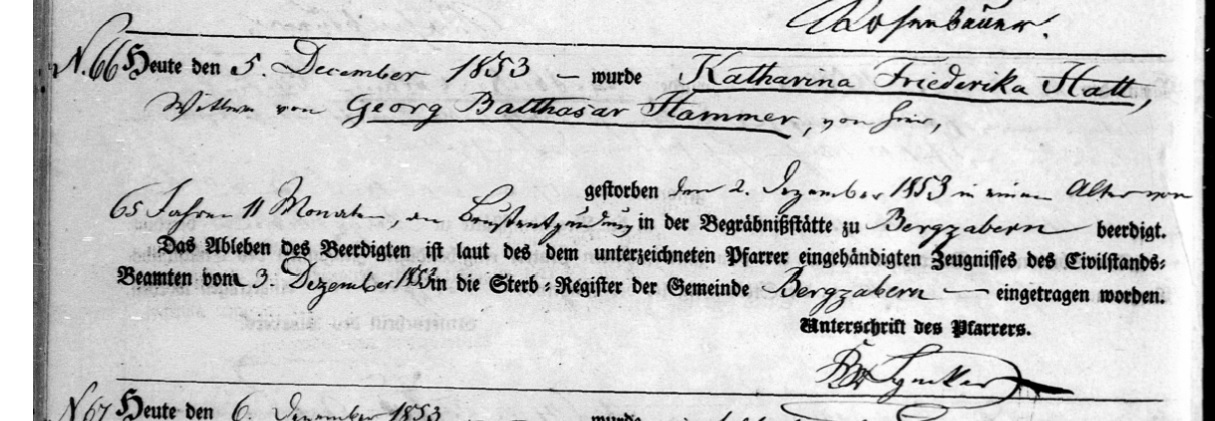 Rosenbauer.
N. 66 Heute den 5. December 1853 – wurde Katharina Friederika Statt,
Wittwe von Georg Balthasar Stammer, von hier,
gestorben den 2. Dezember 1853 in einem Alter von
65 Jahren 11 Monaten, an Brustentzündung in der Begräbnißstätte zu Bergzabern beerdigt.
Das Ableben des Beerdigten ist laut des dem unterzeichneten Pfarrer eingehändigten Zeugnisses des Civilstands-
Beamten vom 3. Dezember 1853 in die Sterb-Register der Gemeinde Bergzabern — eingetragen worden.
Unterschrift des Pfarrers.
N 67 Heute den 6. Dezember 1853 wurde